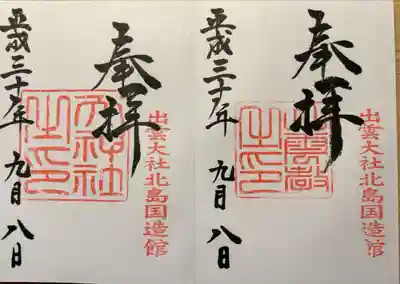 出雲大社北島国造館
奉拝
出雲教
之印
平成三十年 九月 八日
出雲大社北島国造館
奉拝
天神社
之印
平成三十年 九月 八日